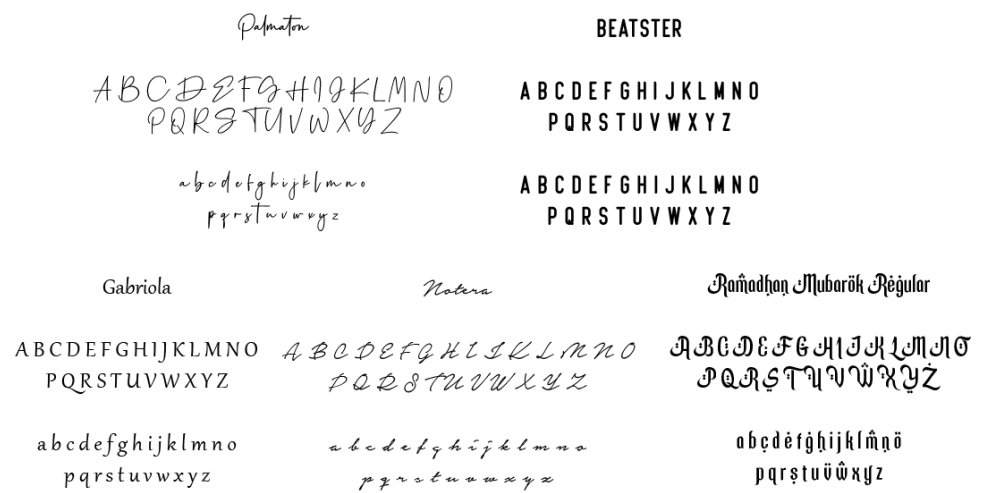 Palmaton
A B C D E F G H I J K L M N O
P Q R S T U V W X Y Z
a b c d e f g h i j k l m n o
p q r s t u v w x y z
BEATSTER
A B C D E F G H I J K L M N O
P Q R S T U V W X Y Z
A B C D E F G H I J K L M N O
P Q R S T U V W X Y Z
Gabriola
A B C D E F G H I J K L M N O
P Q R S T U V W X Y Z
a b c d e f g h i j k l m n o
p q r s t u v w x y z
Notera
A B C D E F G H I J K L M N O
P Q R S T U V W X Y Z
a b c d e f g h i j k l m n o
p q r s t u v w x y z
Ramadhan Mubarok Regular
A B C D E F G H I J K L M N O
P Q R S T U V W X Y Z
a b c d e f g h i j k l m n o
p q r s t u v w x y z